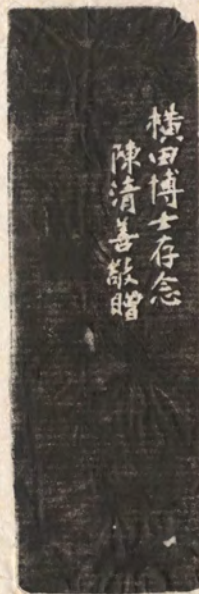 横田博士存念
陳清善敬贈